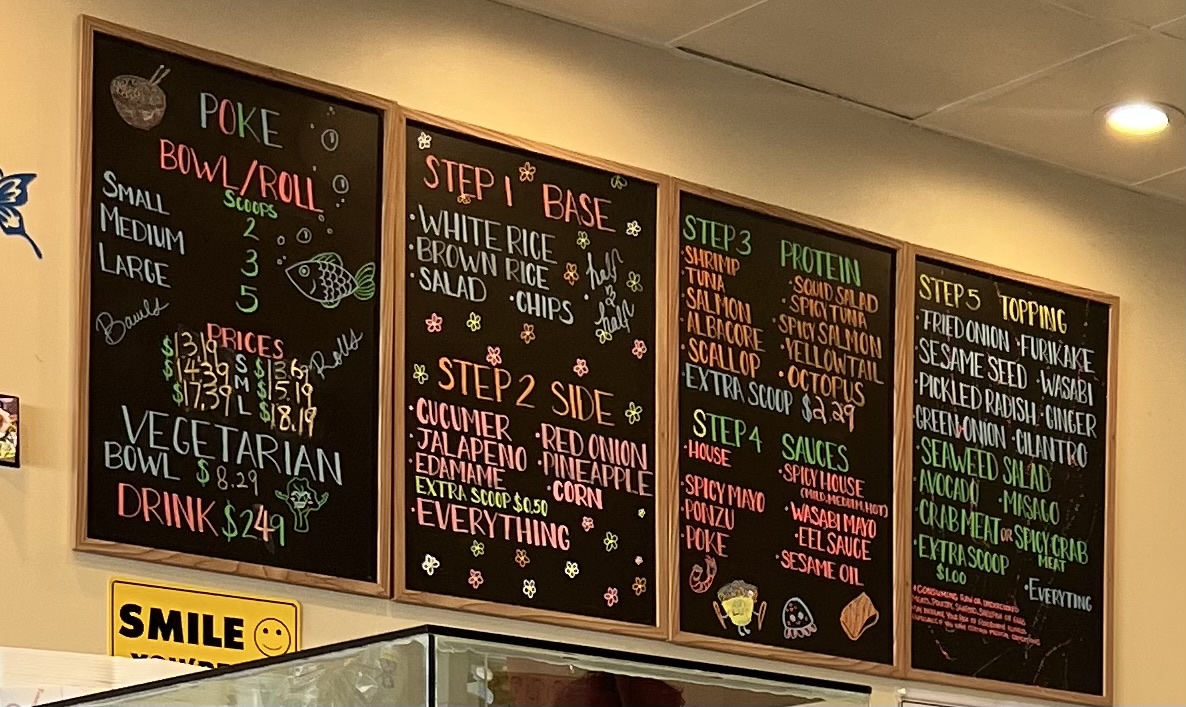 POKE
BOWL/ROLL
SCOOPS
SMALL 2
MEDIUM 3
LARGE 5
Bowls
PRICES
Rolls
$13.19 S $13.69
$14.39 M $15.19
$17.39 L $18.19
VEGETARIAN
BOWL $8.29
DRINK $249
SMILE
STEP 1 BASE
·WHITE RICE
·BROWN RICE
·SALAD ·CHIPS
·half
&
half
STEP 2 SIDE
·CUCUMER ·RED ONION
·JALAPENO ·PINEAPPLE
·EDAMAME ·CORN
EXTRA SCOOP $0.50
·EVERYTHING
STEP 3 PROTEIN
·SHRIMP ·SQUID SALAD
·TUNA ·SPICY TUNA
·SALMON ·SPICY SALMON
·ALBACORE ·YELLOWTAIL
·SCALLOP ·OCTOPUS
·EXTRA SCOOP $2.29
STEP 4 SAUCES
·HOUSE ·SPICY HOUSE
(MILD, MEDIUM, HOT)
·SPICY MAYO ·WASABI MAYO
·PONZU ·EEL SAUCE
·POKE ·SESAME OIL
STEP 5 TOPPING
·FRIED ONION ·FURIKAKE
·SESAME SEED ·WASABI
·PICKLED RADISH ·GINGER
·GREEN ONION ·CILANTRO
·SEAWEED SALAD
·AVOCADO ·MASAGO
·CRAB MEAT OR SPICY CRAB
MEAT
·EXTRA SCOOP
$1.00
·EVERYTING
*CONSUMING RAW OR UNDERCOOKED
MEATS, POULTRY, SEAFOOD, SHELLFISH OR EGGS
MAY INCREASE YOUR RISK OF FOODBORNE ILLNESS,
ESPECIALLY IF YOU HAVE CERTAIN MEDICAL CONDITIONS